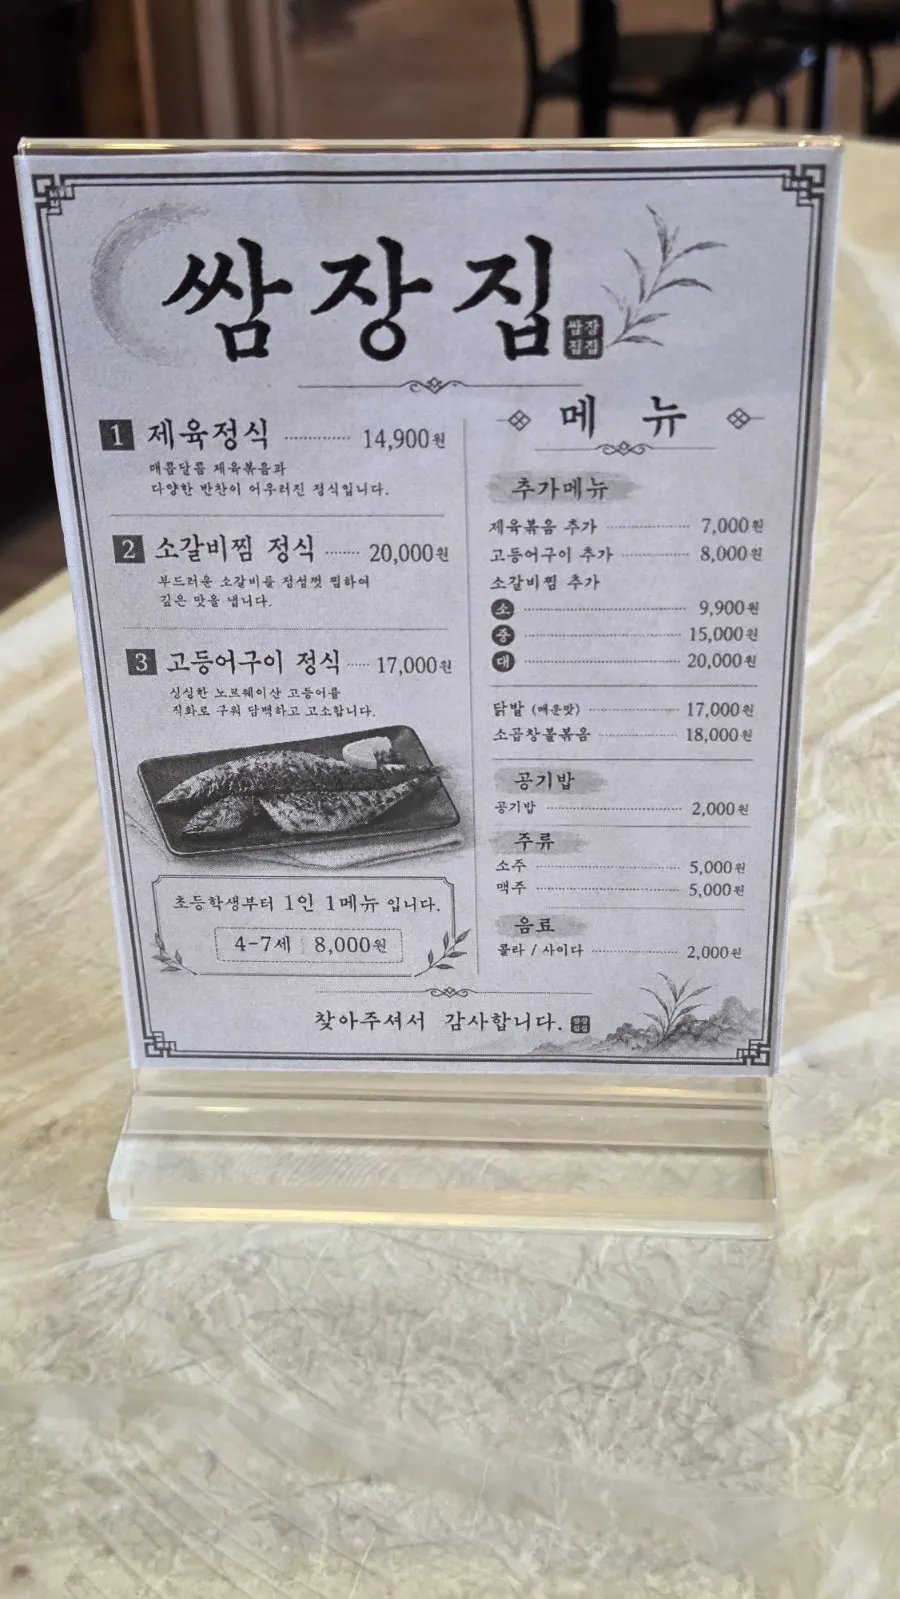 쌈장집
쌈장
집집
1 제육정식 14,900원
매콤달콤 제육볶음과
다양한 반찬이 어우러진 정식입니다.
2 소갈비찜 정식 20,000원
부드러운 소갈비를 정성껏 찜하여
깊은 맛을 냅니다.
3 고등어구이 정식 17,000원
싱싱한 노르웨이산 고등어를
직화로 구워 담백하고 고소합니다.
초등학생부터 1인 1메뉴 입니다.
4-7세 8,000원
메뉴
추가메뉴
제육볶음 추가 7,000원
고등어구이 추가 8,000원
소갈비찜 추가
소 9,900원
중 15,000원
대 20,000원
닭발 (매운맛) 17,000원
소곱창불볶음 18,000원
공기밥
공기밥 2,000원
주류
소주 5,000원
맥주 5,000원
음료
콜라 / 사이다 2,000원
찾아주셔서 감사합니다.